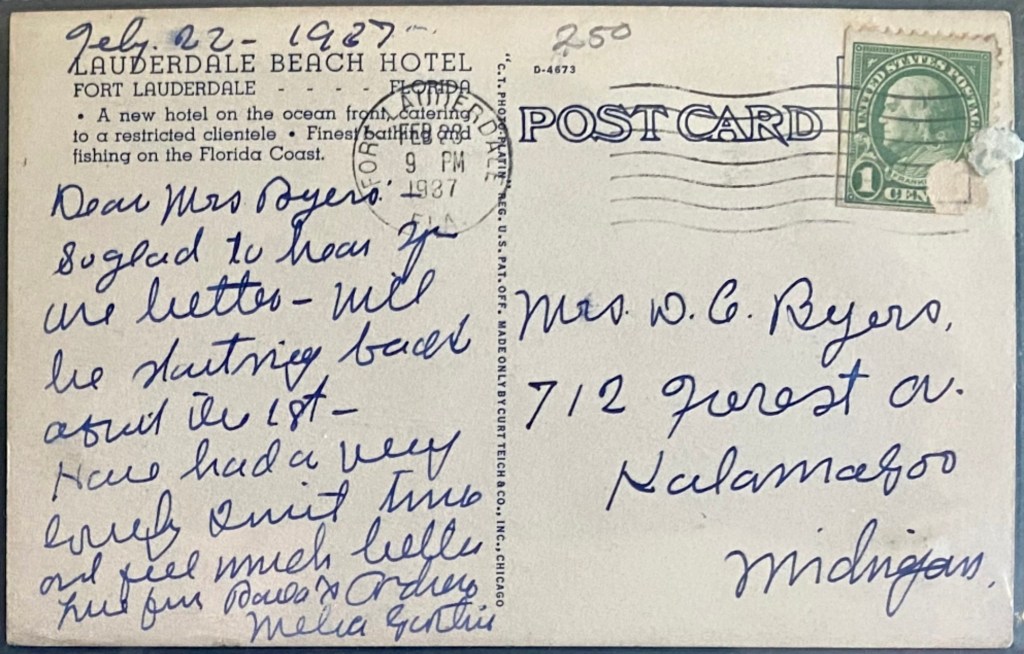 Feby. 22 - 1937 -
LAUDERDALE BEACH HOTEL
FORT LAUDERDALE - - - - FLORIDA
• A new hotel on the ocean front, catering
to a restricted clientele • Finest bathing and
fishing on the Florida Coast.
Dear Mrs Byers -
So glad to hear you
are better - will
be starting back
about the 1st -
Have had a very
lovely quiet time
and feel much better
"C.T. PHOTO-PLATIN" REG. U.S. PAT. OFF. MADE ONLY BY CURT TEICH & CO., INC., CHICAGO
250
D-4673
POST CARD
FORT LAUDERDALE
FEB 23
9 PM
1937
FLA.
UNITED STATES POSTAGE
FRANKLIN
1 CENT
Mrs. D. C. Byers,
712 Forest A.
Kalamazoo
Michigan.